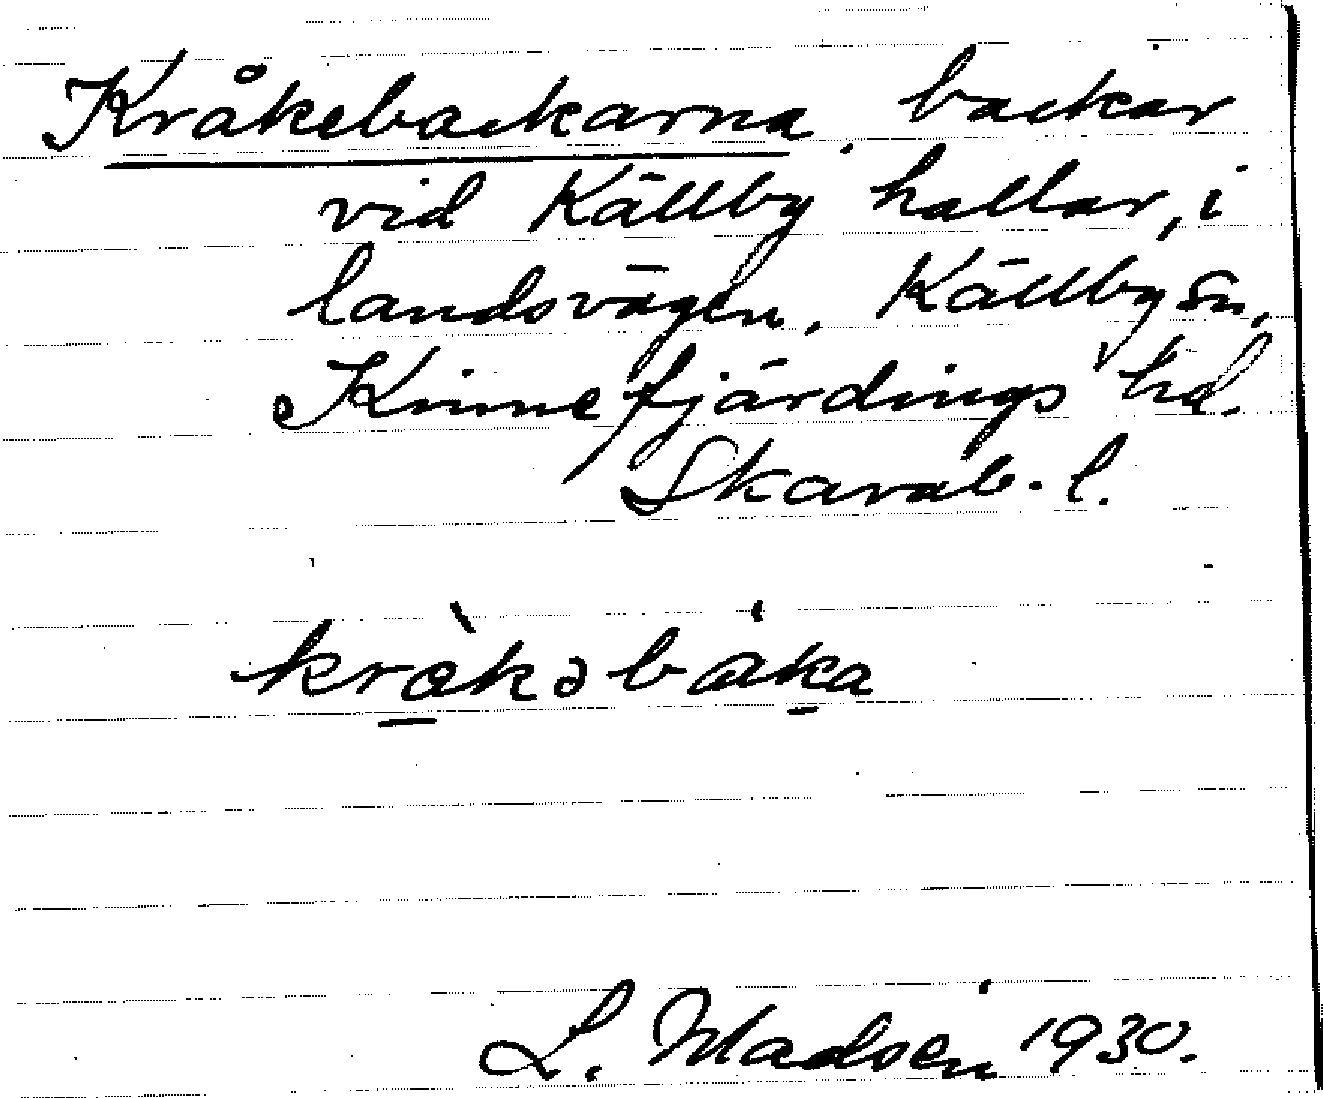 Kråkebackarna, backar
vid Källby hallar, i
landsvägen, Källby sn,
Kinnefjärdings hd.
Skarab. l.
kràkəbáka
L. Madsén 1930.